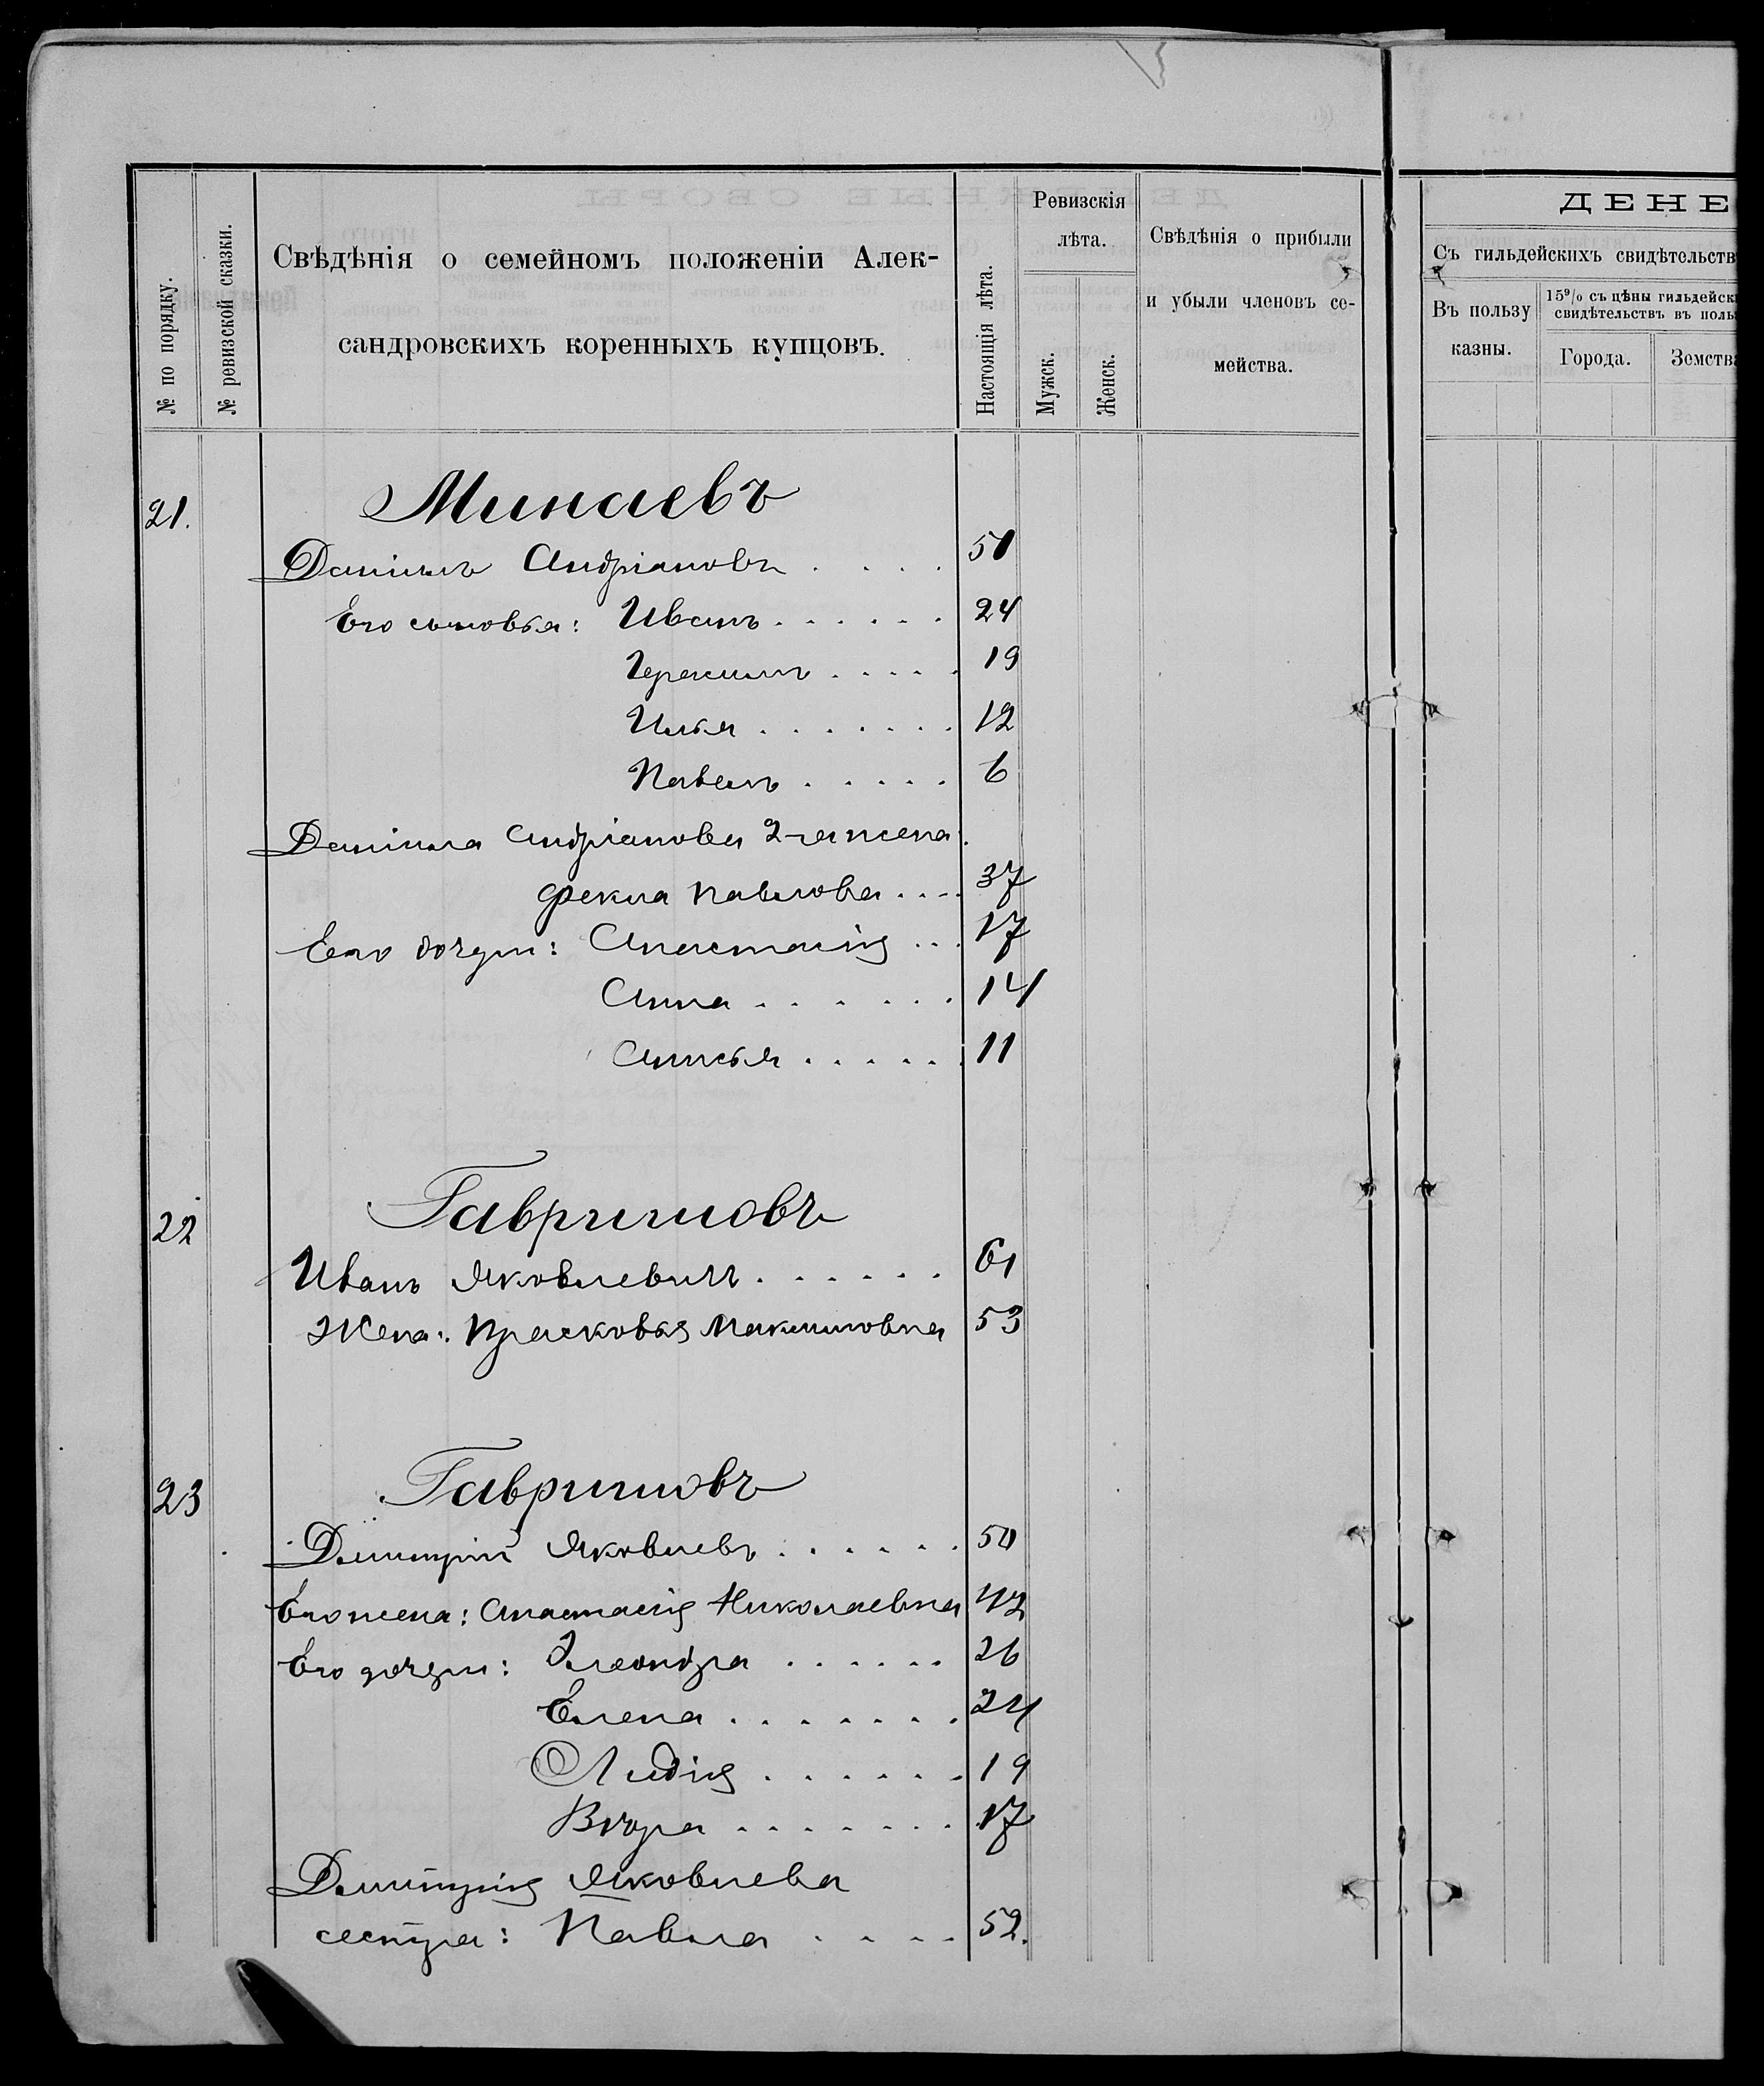 № по порядку.
№ ревизской сказки.
Свѣдѣнія о семейномъ положеніи Алек-
сандровскихъ коренныхъ купцовъ.
Настоящія лѣта.
Ревизскія
лѣта.
Мужск.
Женск.
Свѣдѣнія о прибыли
и убыли членовъ се-
мейства.
ДЕНЕ
Съ гильдейскихъ свидѣтельств
Въ пользу
казны.
15% съ цѣны гильдейск
свидѣтельствъ въ поль
Города.
Земств
21. Минаевъ
Даніилъ Андріановъ . . . . 50
Его сыновья: Иванъ . . . . . . 24
Герасимъ . . . . . 19
Илья . . . . . . . 12
Павелъ . . . . . 6
Даніила Андріанова 2-я жена:
Фекла Павлова . . . . 37
Его дочери: Анастасія . . . 17
Анна . . . . . . . 14
Анисья . . . . . . 11
22 Гавриловъ
Иванъ Яковлевичъ . . . . . . 61
Жена: Прасковья Максимовна 53
23 Гавриловъ
Дмитрій Яковлевъ . . . . . . 50
Его жена: Анастасія Николаевна 42
Его дочери: . . . . . . 26
Елена . . . . . . . 24
Лидія . . . . . . . 19
Вѣра . . . . . . . 17
Дмитрія Яковлева
сестра: Павла . . . . 52.